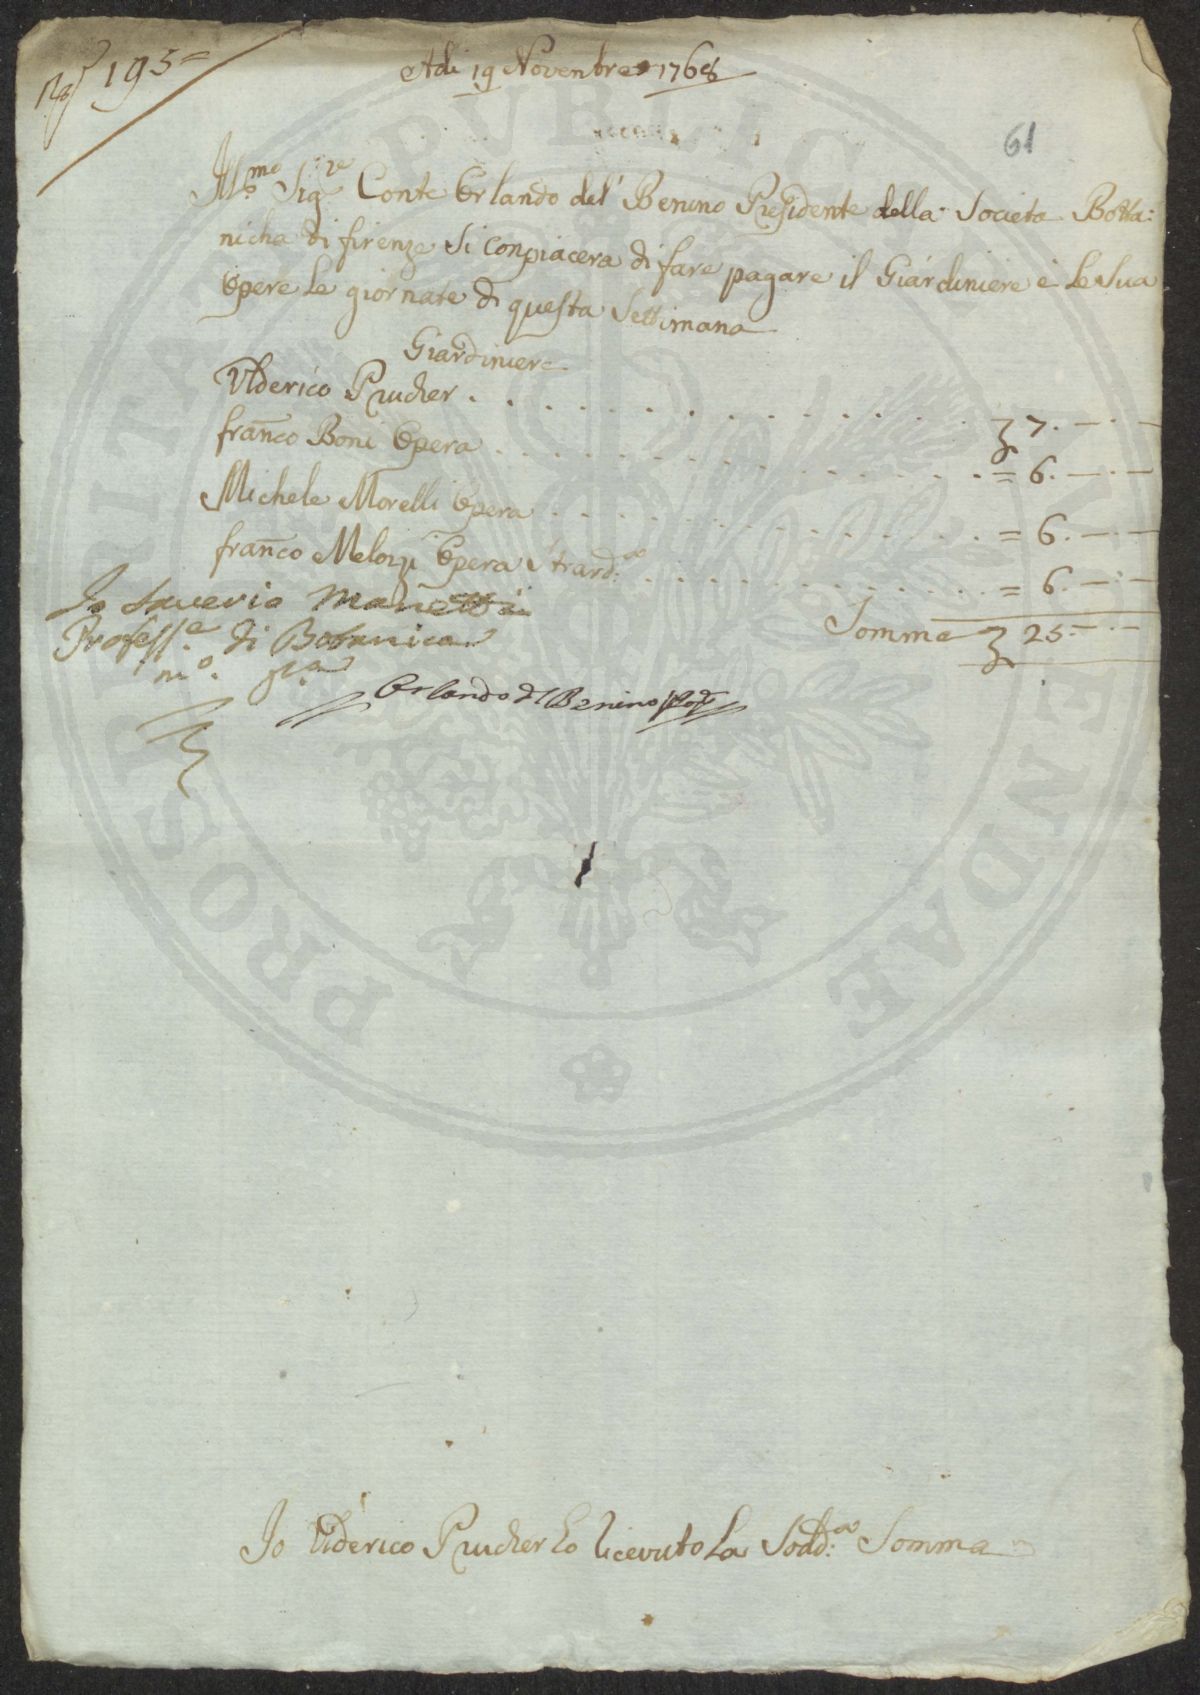 195=
Adi 19 Novembre 1768
61
Ill.mo Sig.re Conte Orlando del' Benino Presidente della Societa Botta:
nicha di firenze Si Conpiacera di fare pagare il Giardiniere è le Sua
Opere Le giornate di questa Settimana
Giardiniere
Ulderico Prucher . . . . . . . . . . . . 7. — · —
franco Boni Opera . . . . . . . . . . . . = 6. — · —
Michele Morelli Opera . . . . . . . . . . . = 6. — · —
franco Melozzi Opera Strard:a . . . . . . . . . = 6. — · —
Somma 25. — · —
Io Saverio Manetti
Profess.e di Botanica
m.o p.a
Orlando del Benino
Io Ulderico Prucher ho Ricevuto La Sodd:a Somma
PROSPERITATI PUBLICAE AUGENDAE